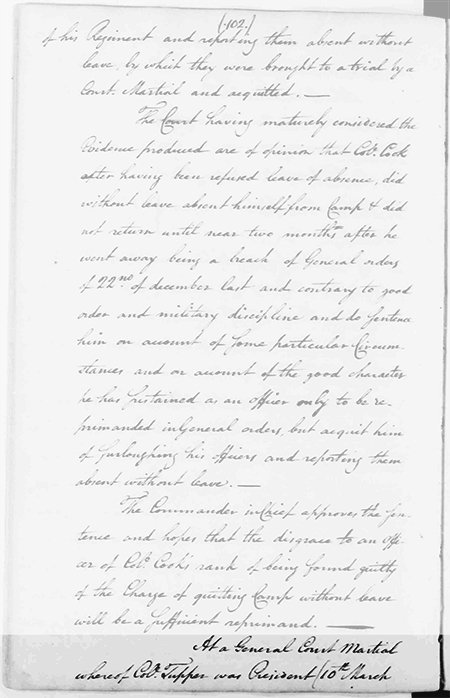 (102.)
of his Regiment and reporting them absent without
leave, by which they were brought to a trial by a
Court Martial and acquitted. —
The Court having maturely considered the
Evidence produced are of opinion that Col. Cook
after having been refused leave of absence, did
without leave absent himself from Camp & did
not return until near two months after he
went away being a breach of General orders
of 22nd of december last and contrary to good
order and military discipline and do sentence
him on account of some particular Circum-
stances and on account of the good character
he has sustained as an officer only to be re-
primanded in General orders, but acquit him
of furloughing his officers and reporting them
absent without leave. —
The Commander in Chief approves the sen-
tence and hopes that the disgrace to an offi-
cer of Col. Cook's rank of being found guilty
of the Charge of quitting Camp without leave
will be a sufficient reprimand. —
At a General Court Martial
whereof Col. Tupper was President 10th March